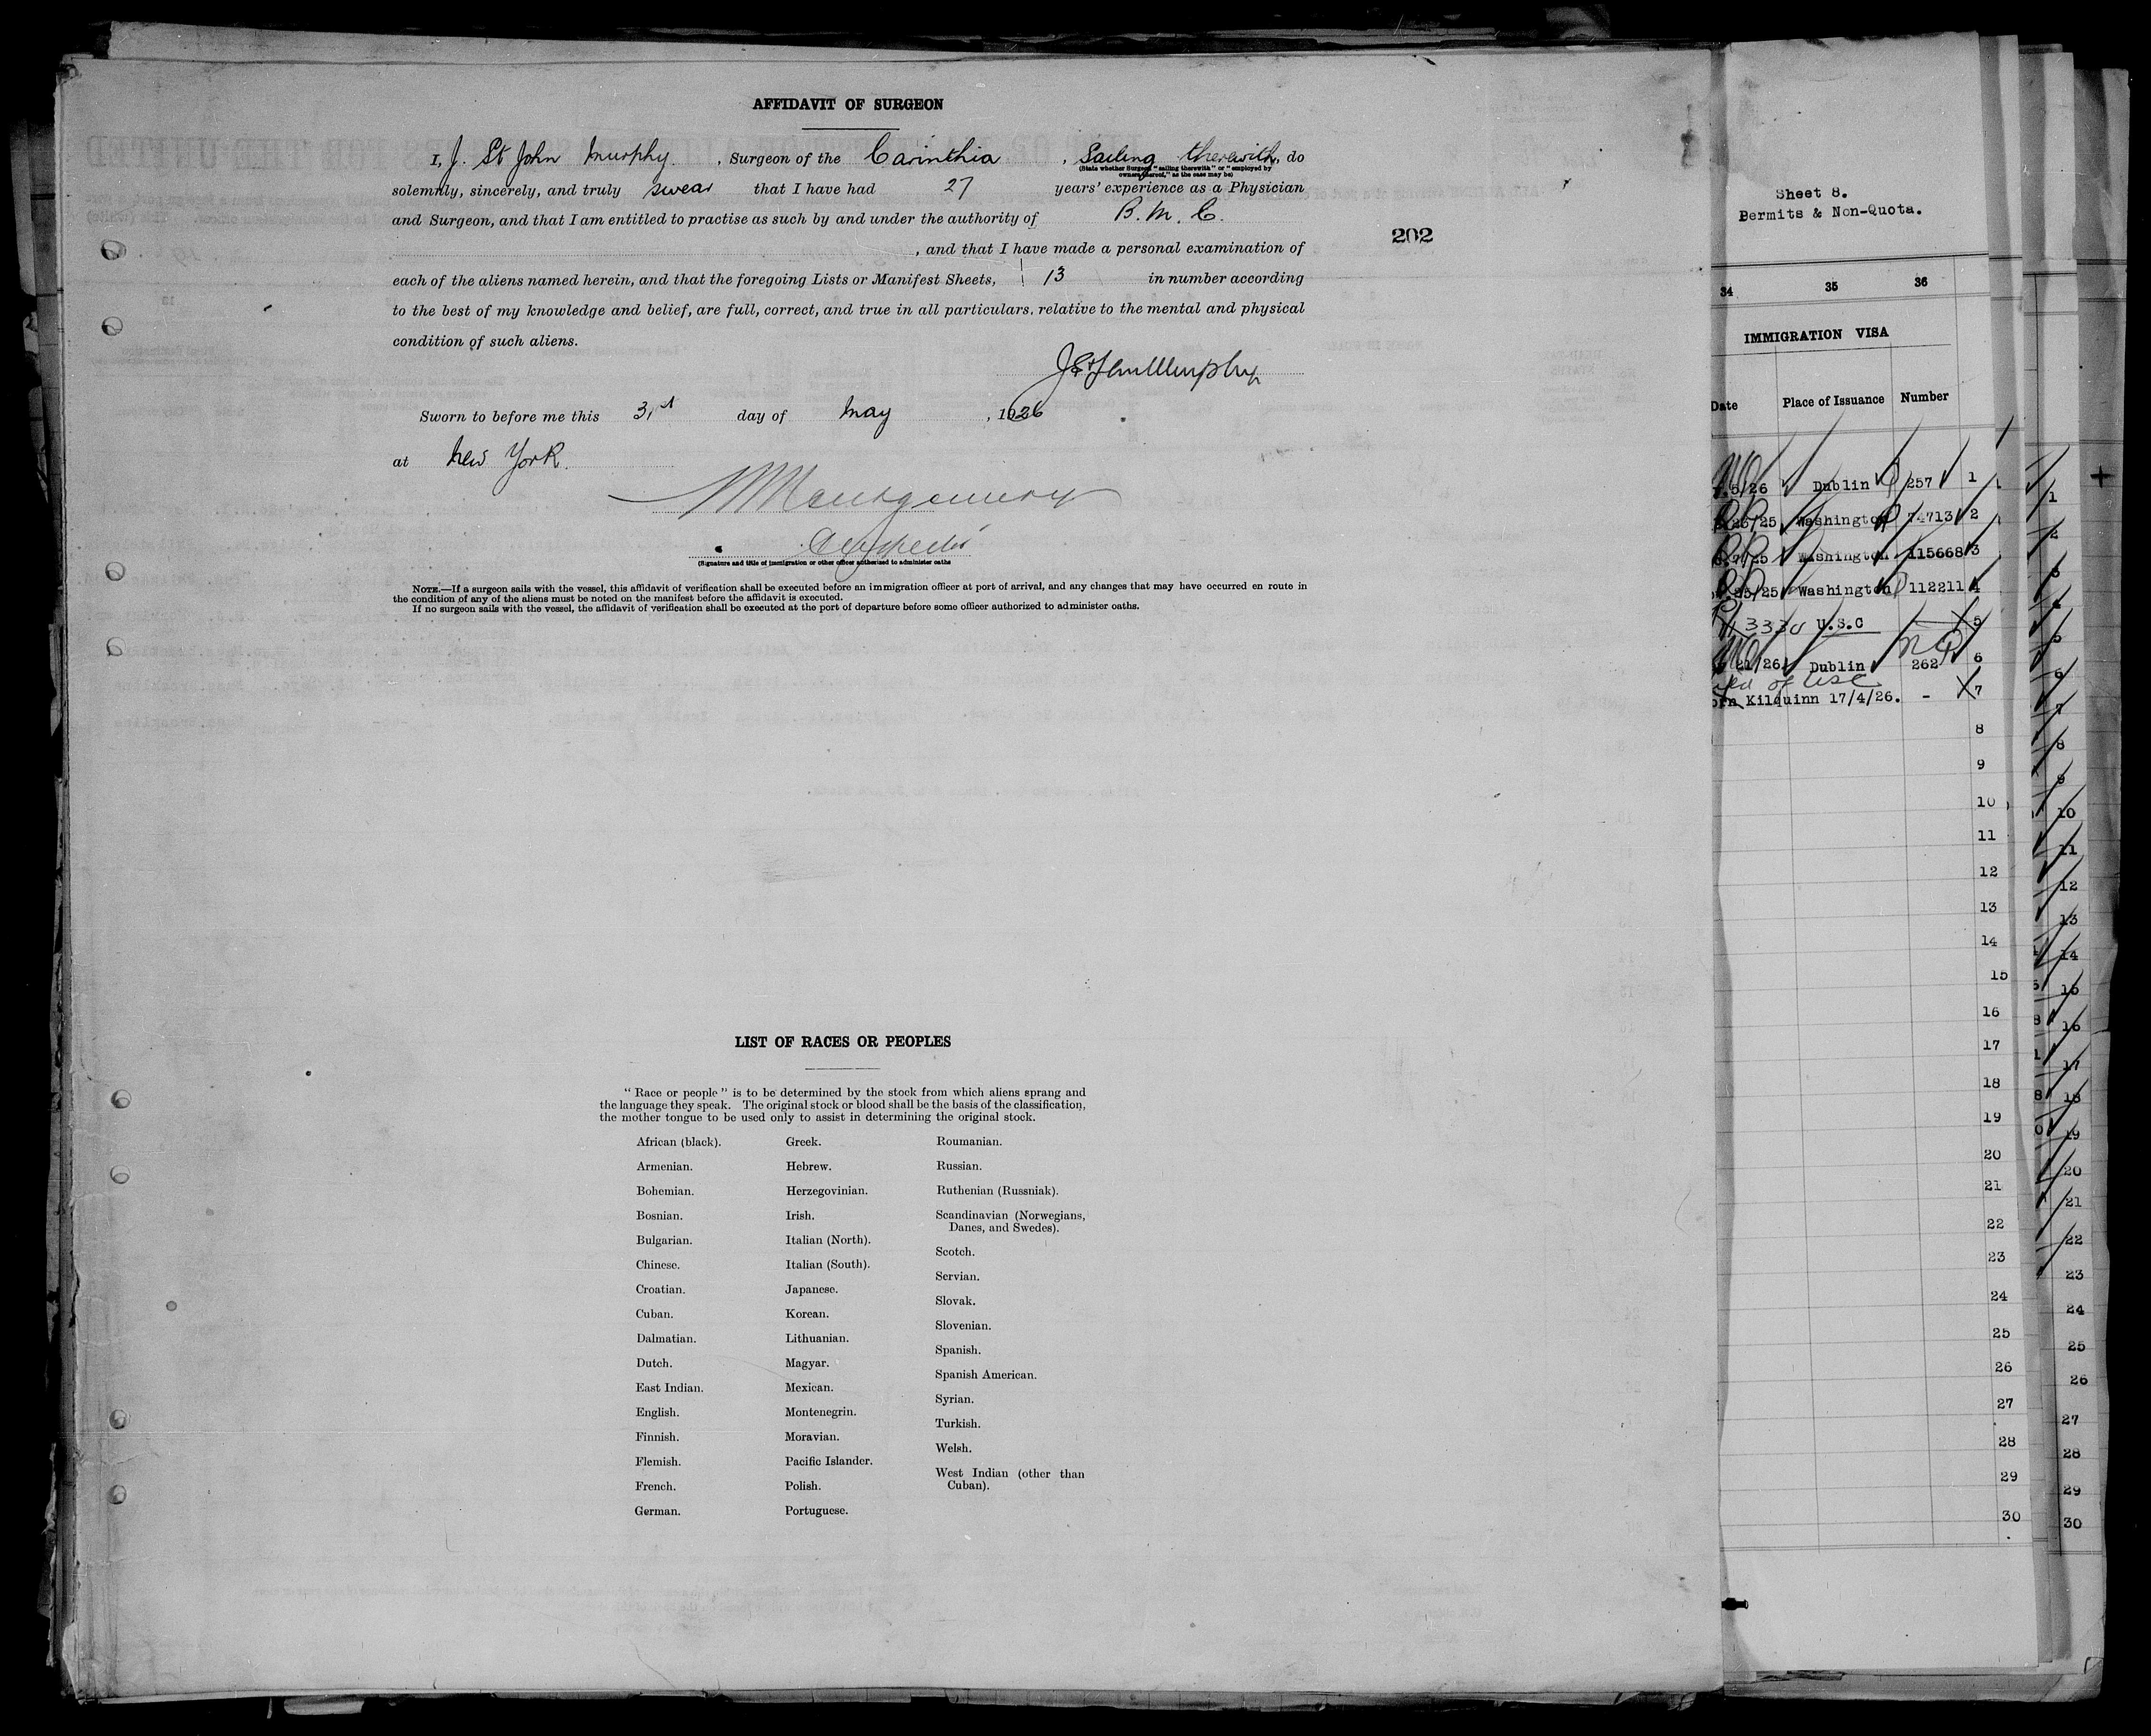 AFFIDAVIT OF SURGEON
I, J. St John Murphy, Surgeon of the Carinthia, Sailing therewith, do
(State whether Surgeon "sailing therewith" or "employed by
owners thereof," as the case may be)
solemnly, sincerely, and truly swear that I have had 27 years' experience as a Physician
and Surgeon, and that I am entitled to practise as such by and under the authority of B. M. C.
, and that I have made a personal examination of
202
each of the aliens named herein, and that the foregoing Lists or Manifest Sheets, 13 in number according
to the best of my knowledge and belief, are full, correct, and true in all particulars, relative to the mental and physical
condition of such aliens.
J St John Murphy
Sworn to before me this 31st day of May, 1926
at New York.
Montgomery
(Signature and title of immigration or other officer authorized to administer oaths
NOTE.—If a surgeon sails with the vessel, this affidavit of verification shall be executed before an immigration officer at port of arrival, and any changes that may have occurred en route in
the condition of any of the aliens must be noted on the manifest before the affidavit is executed.
If no surgeon sails with the vessel, the affidavit of verification shall be executed at the port of departure before some officer authorized to administer oaths.
LIST OF RACES OR PEOPLES
"Race or people" is to be determined by the stock from which aliens sprang and
the language they speak. The original stock or blood shall be the basis of the classification,
the mother tongue to be used only to assist in determining the original stock.
African (black).
Armenian.
Bohemian.
Bosnian.
Bulgarian.
Chinese.
Croatian.
Cuban.
Dalmatian.
Dutch.
East Indian.
English.
Finnish.
Flemish.
French.
German.
Greek.
Hebrew.
Herzegovinian.
Irish.
Italian (North).
Italian (South).
Japanese.
Korean.
Lithuanian.
Magyar.
Mexican.
Montenegrin.
Moravian.
Pacific Islander.
Polish.
Portuguese.
Roumanian.
Russian.
Ruthenian (Russniak).
Scandinavian (Norwegians,
Danes, and Swedes).
Scotch.
Servian.
Slovak.
Slovenian.
Spanish.
Spanish American.
Syrian.
Turkish.
Welsh.
West Indian (other than
Cuban).
Sheet 8.
Permits & Non-Quota.
34 35 36
IMMIGRATION VISA
Date Place of Issuance Number
5/26 Dublin 257 1
/25 Washington 74713 2
7/25 Washington 115668 3
/25 Washington 112211 4
3330 U.S.C 5
NQ
21/26 Dublin 262 6
of USC
Kilquinn 17/4/26. - 7
8
9
10
11
12
13
14
15
16
17
18
19
20
21
22
23
24
25
26
27
28
29
30
1
2
3
4
5
6
7
8
9
10
11
12
13
14
15
16
17
18
19
20
21
22
23
24
25
26
27
28
29
30